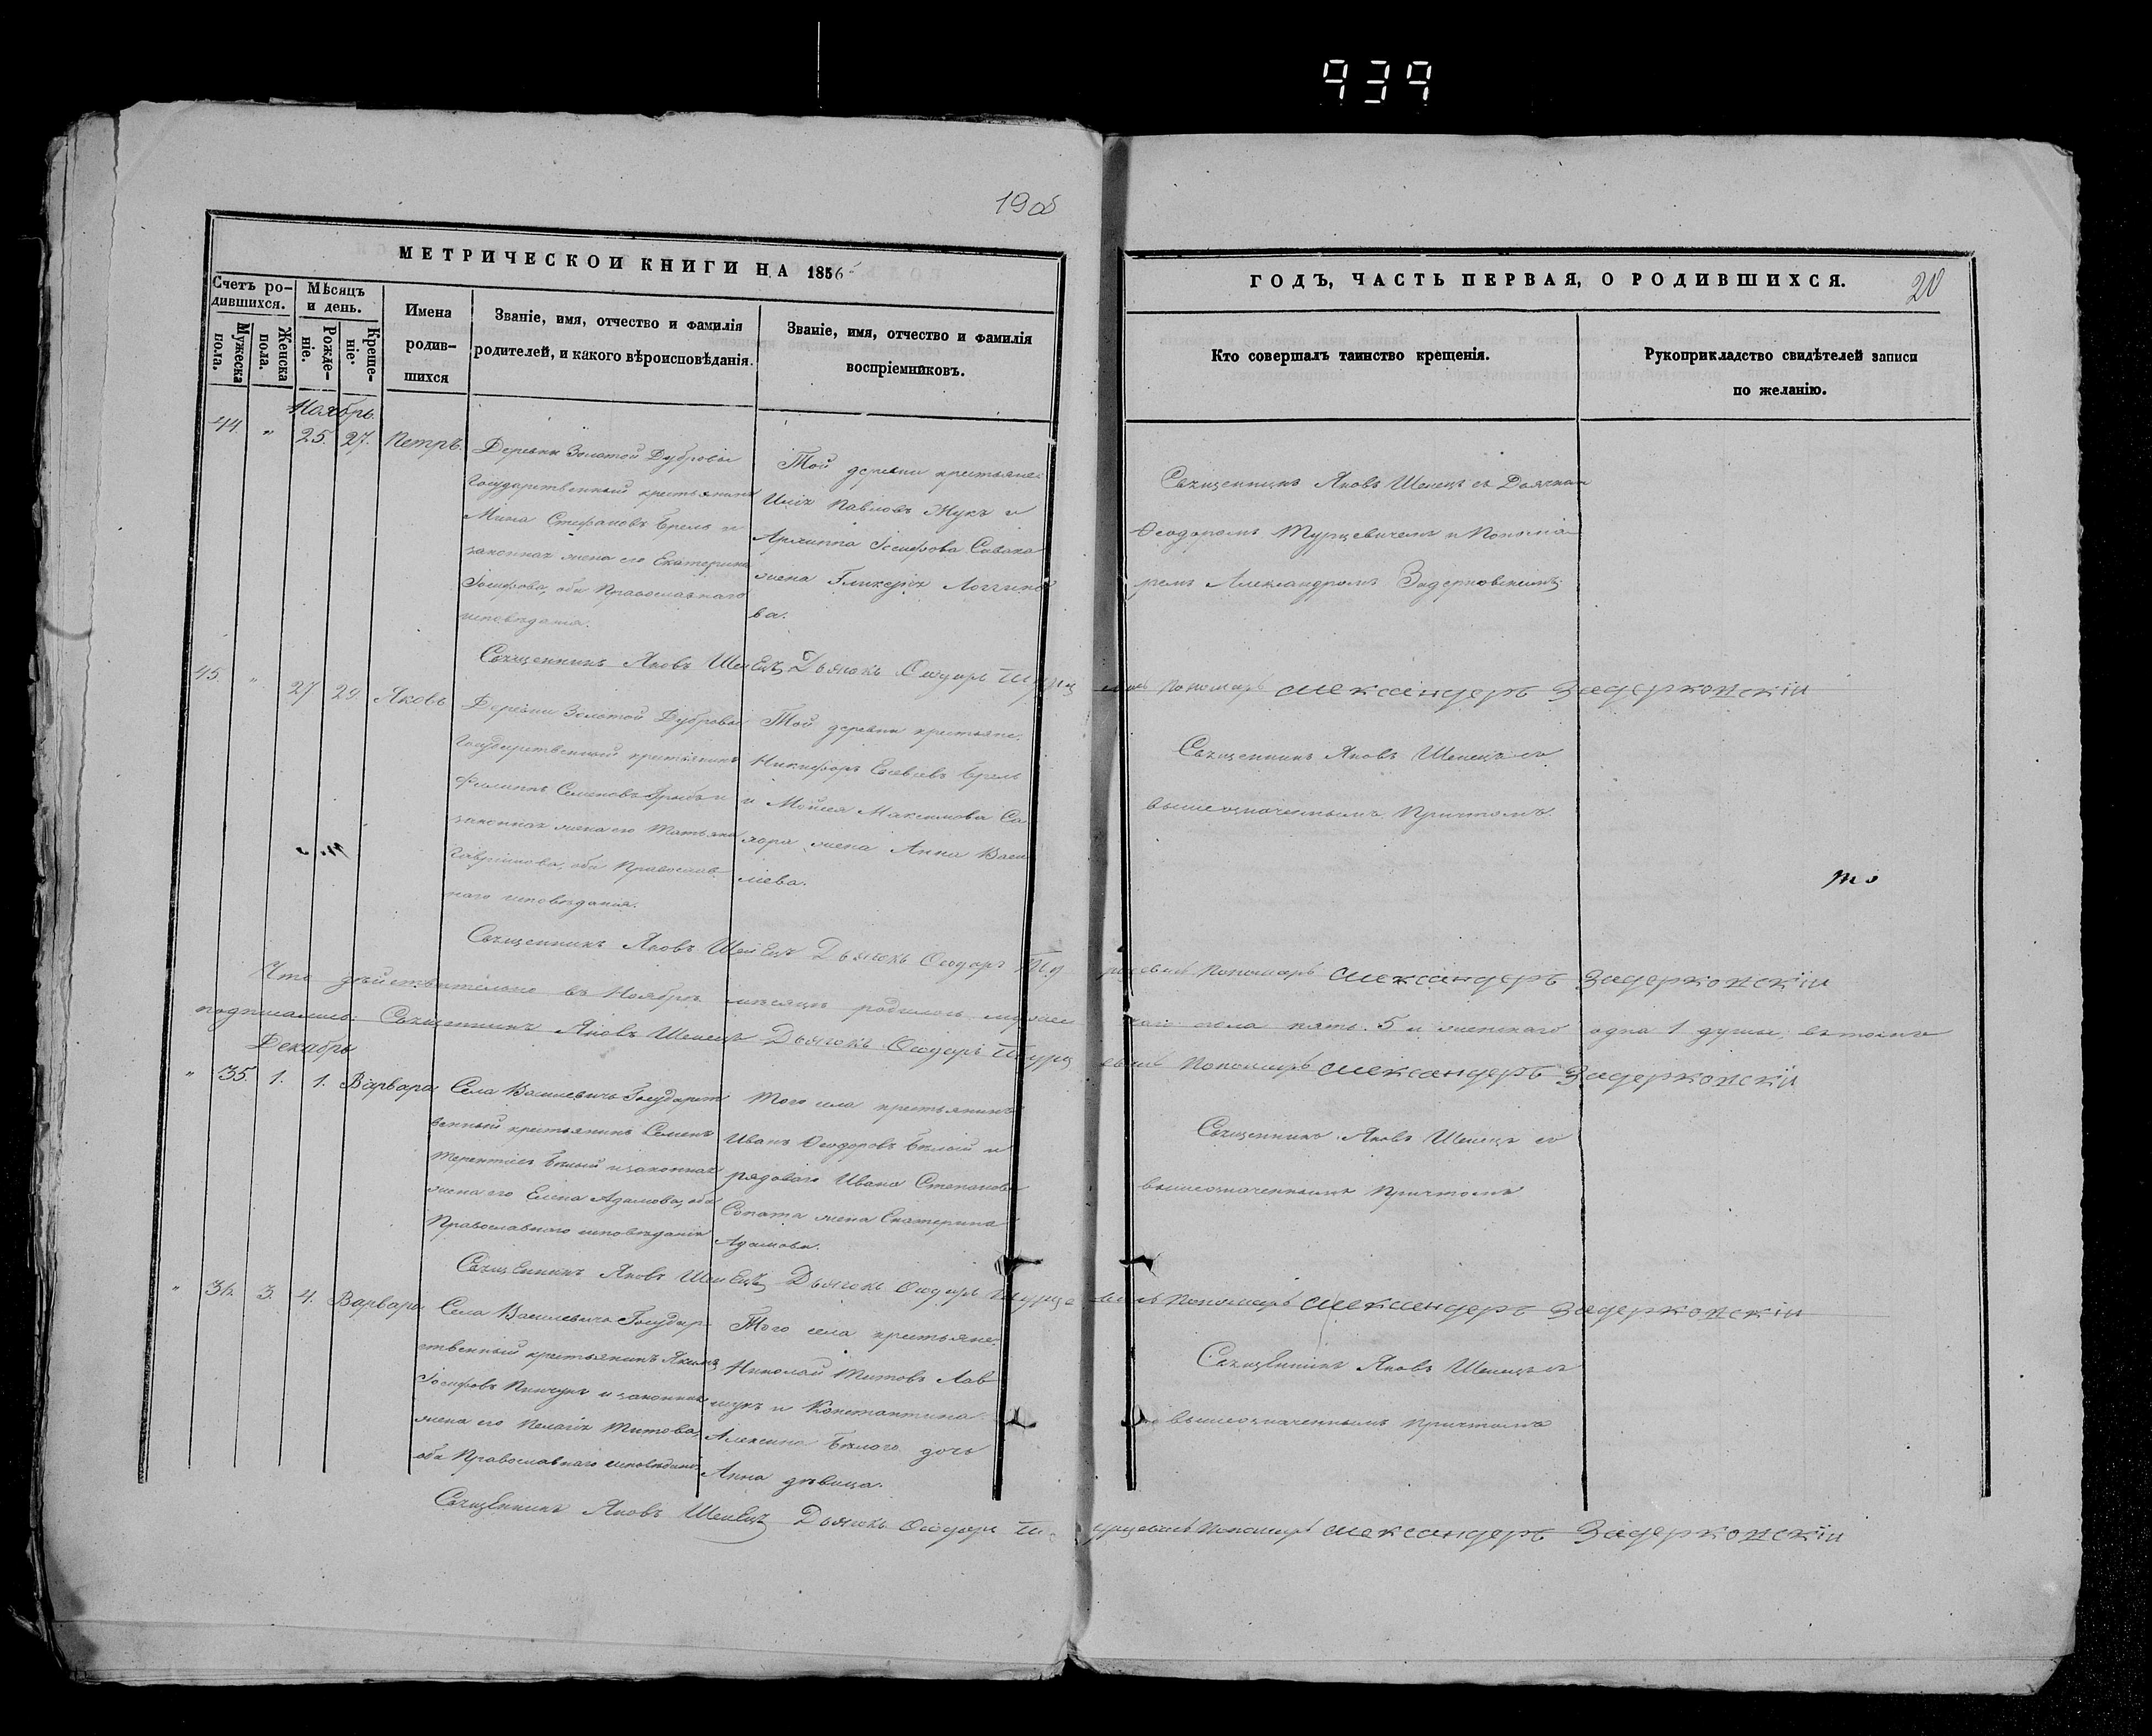 939
19об
МЕТРИЧЕСКОЙ КНИГИ НА 1856
ГОДЪ, ЧАСТЬ ПЕРВАЯ, О РОДИВШИХСЯ.
20
Счетъ ро-
дившихся.
Мѣсяцъ
и день.
Мужеска
пола.
Женска
пола.
Рожде-
ніе.
Креще-
ніе.
Имена
родив-
шихся
Званіе, имя, отчество и фамилія
родителей, и какого вѣроисповѣданія.
Званіе, имя, отчество и фамилія
воспріемниковъ.
Кто совершалъ таинство крещенія.
Рукоприкладство свидѣтелей записи
по желанію.
Ноябрь.
44. " 25. 27. Петръ.
Деревни Золотой Дубровы
Государственный крестьянинъ
Мина Стефановъ Брель и
законная жена его Екатерина
Іосифова, оба Православнаго
исповѣданія.
Той деревни крестьяне:
Илія Павловъ Жукъ и
Архиппа Іосифова Савака
жена Гликерія Логгино
ва.
Священникъ Яковъ Шепецъ съ Дьячкомъ
Ѳеодоромъ Турцевичемъ и Понома
ремъ Александромъ Задерковскимъ
Священникъ Яковъ Шепецъ Дьячокъ Ѳеодоръ Турцевичъ Пономаръ Александеръ Задерковскій
45. " 27 29 Яковъ
Деревни Золотой Дубровы
Государственный крестьянинъ
Филиппъ Семеновъ и
законная жена его Татьяна
Гавріилова, оба Православ
наго исповѣданія.
Той деревни крестьяне:
Никифоръ Евсевіевъ Брель
и Мойсея Максимова Са
хора жена Анна Васи
ліева.
Священникъ Яковъ Шепецъ съ
вышеозначеннымъ Причтомъ.
Священникъ Яковъ Шепецъ Дьячокъ Ѳеодоръ Турцевичъ Пономаръ Александеръ Задерковскій
Что дѣйствительно въ Ноябрѣ мѣсяцѣ родилось мужес каго пола пять 5 и женскаго одна 1 душа, въ томъ
подписались: Священникъ Яковъ Шепецъ Дьячокъ Ѳеодоръ Турцевичъ Пономаръ Александеръ Задерковскій
Декабрь
" 35. 1. 1. Варвара
Села Василевичъ Государст
венный крестьянинъ Семенъ
Терентіевъ Бѣлый и законная
жена его Елена Адамова, оба
Православнаго исповѣданія
Того села крестьянинъ
Иванъ Ѳеодоровъ Бѣлый и
рядоваго Ивана Степанова
Сопота жена Екатерина
Адамова.
Священникъ Яковъ Шепецъ съ
вышеозначеннымъ Причтомъ
Священникъ Яковъ Шепецъ Дьячокъ Ѳеодоръ Турцевичъ Пономаръ Александеръ Задерковскій
" 36. 3. 4. Варвара
Села Василевичъ Государ
ственный крестьянинъ Якимъ
Іосифовъ Пинчукъ и законная
жена его Пелагія Титова,
оба Православнаго исповѣданія
Того села крестьяне:
Николай Титовъ Лав
щукъ и Константина
Алексина Бѣлаго дочь
Анна дѣвица.
Священникъ Яковъ Шепецъ съ
вышеозначеннымъ Причтомъ
Священникъ Яковъ Шепецъ Дьячокъ Ѳеодоръ Турцевичъ Пономаръ Александеръ Задерковскій